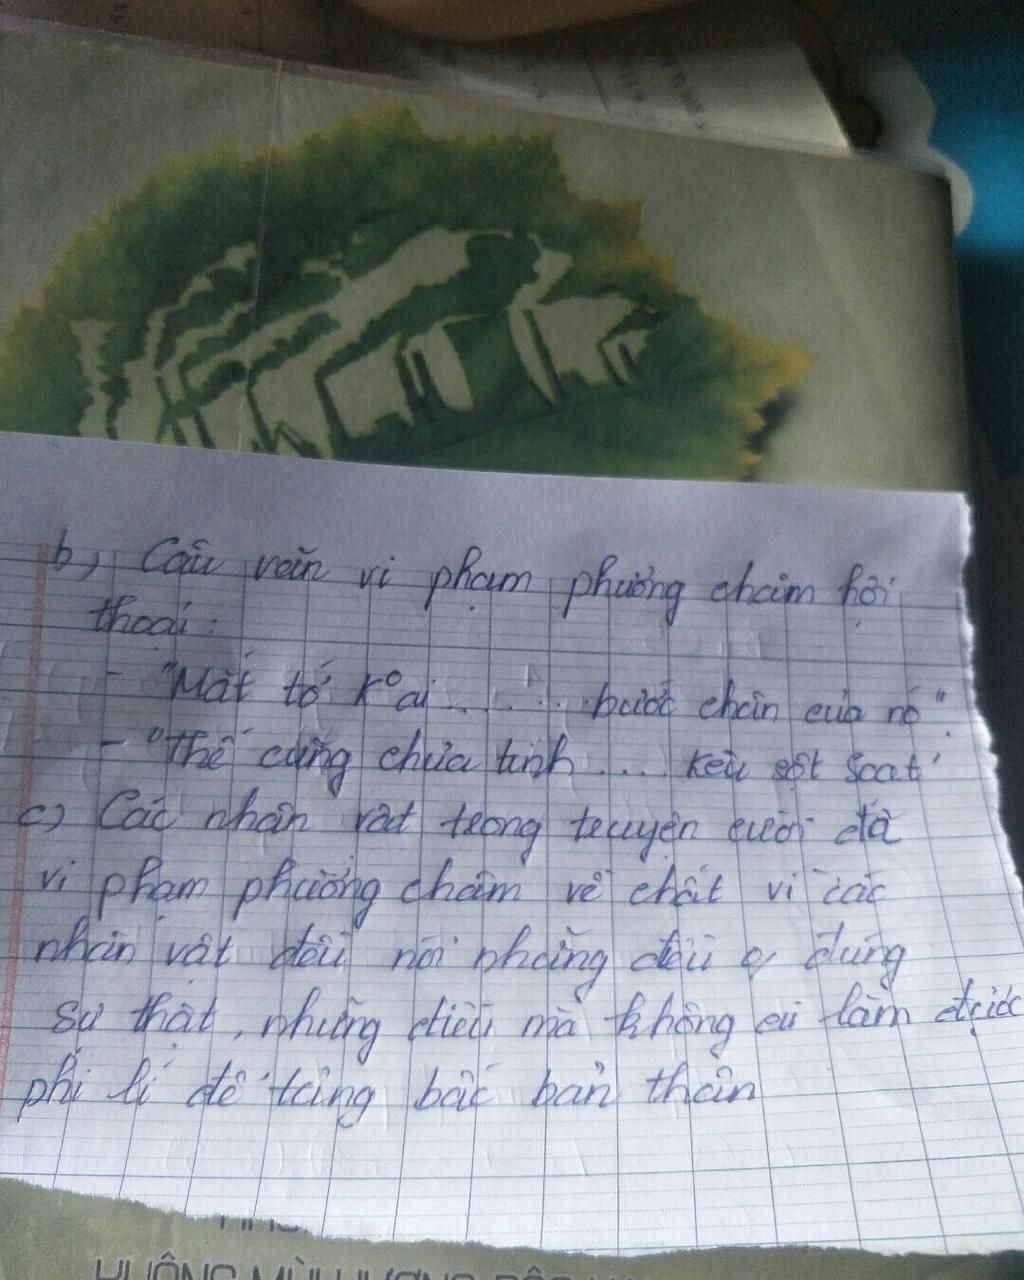 b) Câu văn vi phạm phương châm hội
thoại:
- "Mắt tớ k° ai ....... bước chân của nó"
- "Thế cũng chưa tinh .... kêu sột soạt"
c) Các nhân vật trong truyện cười đã
vi phạm phương châm về chất vì các
nhân vật đều nói những điều o đúng
sự thật, những điều mà không ai làm được
phi lí để tâng bốc bản thân
HƯƠNG